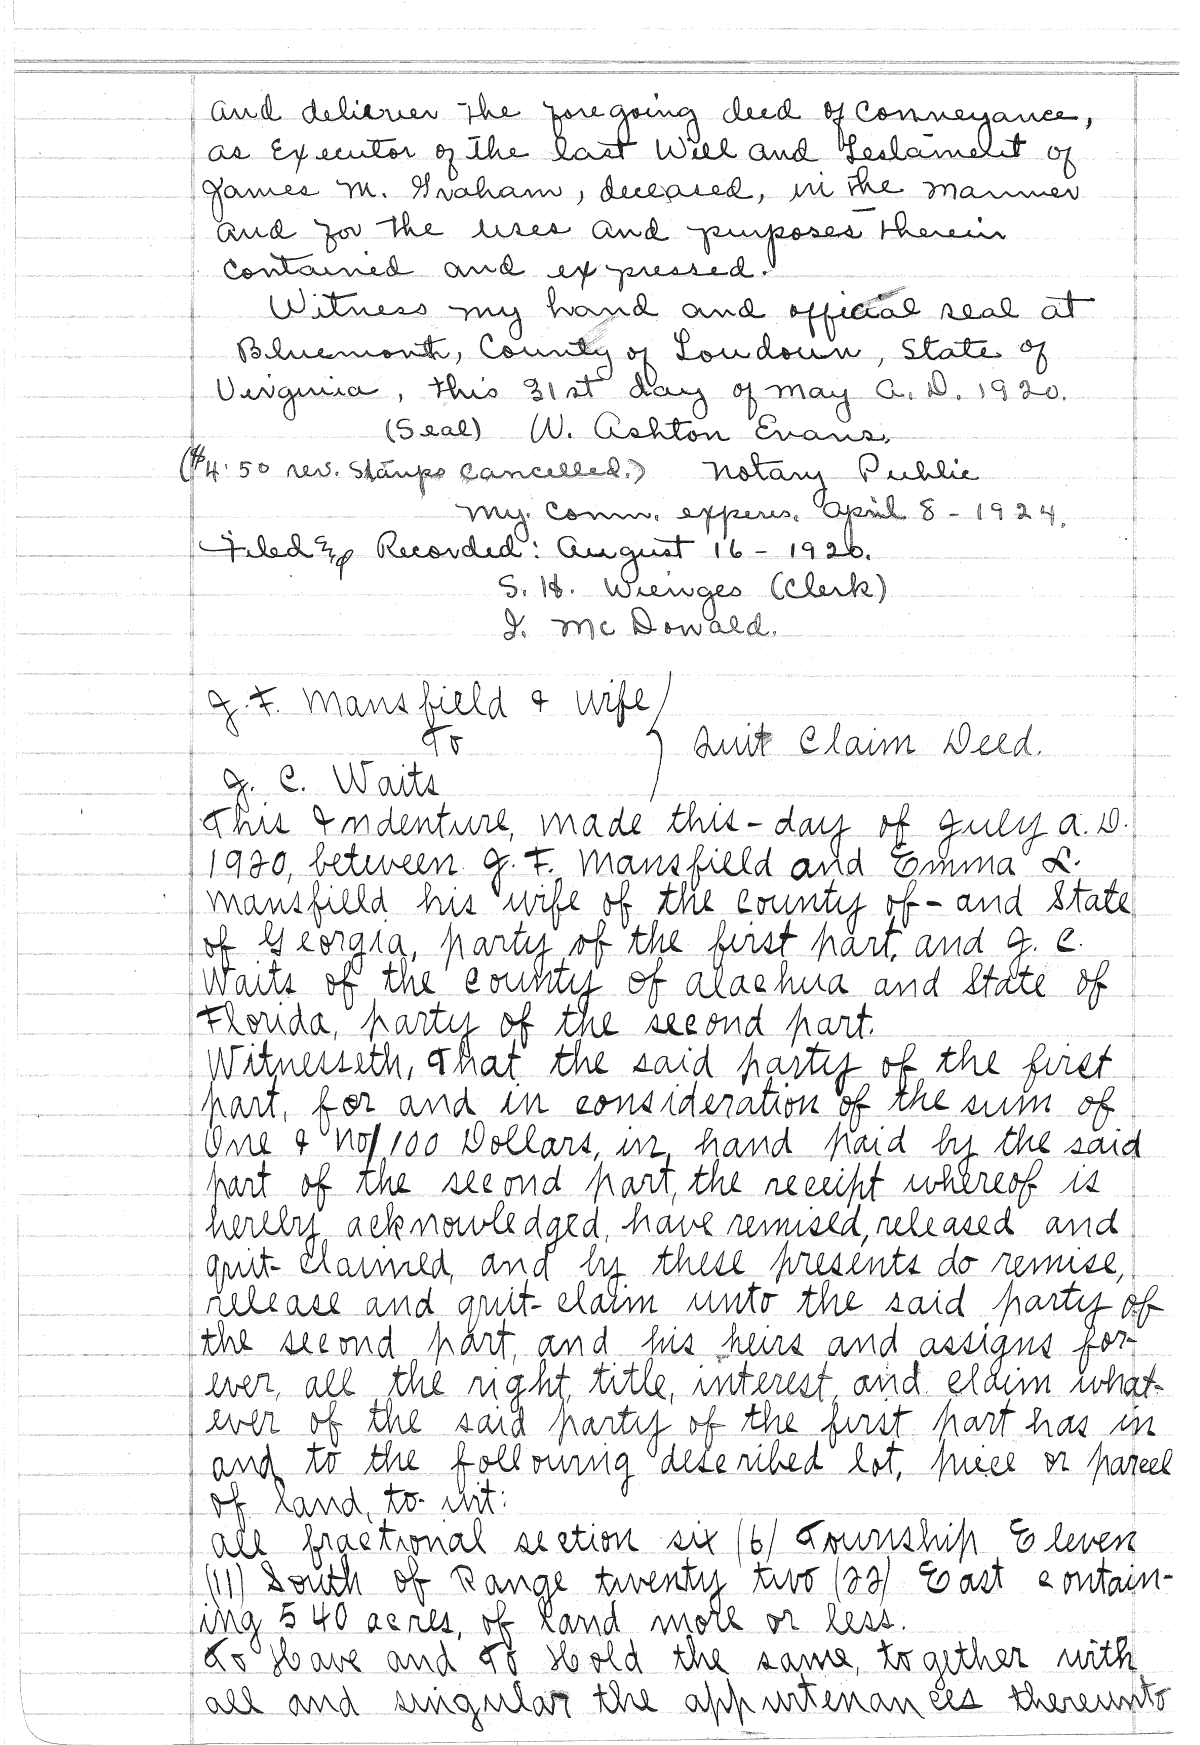 and deliever the foregoing deed of Conveyance,
as Executor of the last Will and Testament of
James M. Graham, deceased, in the manner
and for the uses and purposes therein
contained and expressed.
Witness my hand and official seal at
Bluemont, County of Loudoun, State of
Virginia, this 31st day of May A. D. 1920.
(Seal) W. Ashton Evans,
($4.50 rev. Stamps Cancelled.) Notary Public
My. Comm. experes. April 8 - 1924.
Filed & Recorded: August 16 - 1920.
S. H. Wienges (Clerk)
J. McDonald.
J. F. Mansfield & wife
To
Quit Claim Deed.
J. C. Waits
This Indenture, made this - day of July A. D.
1920, between J. F. Mansfield and Emma L.
Mansfield his wife of the county of - and State
of Georgia, party of the first part, and J. C.
Waits of the county of Alachua and State of
Florida, party of the second part.
Witnesseth, That the said party of the first
part, for and in consideration of the sum of
One & No/100 Dollars, in hand paid by the said
part of the second part, the receipt whereof is
hereby acknowledged, have remised, released and
quit-claimed, and by these presents do remise,
release and quit-claim unto the said party of
the second part, and his heirs and assigns for-
ever, all the right, title, interest, and claim what-
ever of the said party of the first part has in
and to the following described lot, piece or parcel
of land, to-wit:
All fractional section six (6) Township Eleven
(11) South of Range twenty two (22) East contain-
ing 540 acres, of land more or less.
To Have and To Hold the same, together with
all and singular the appurtenances thereunto